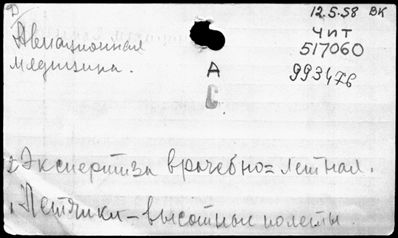 12.5.58 ВК
Авиационная
медицина.
Чит
517060
993476
А
С
2 Экспертиза врачебно=летная.
1 Летчики-высотные полеты.